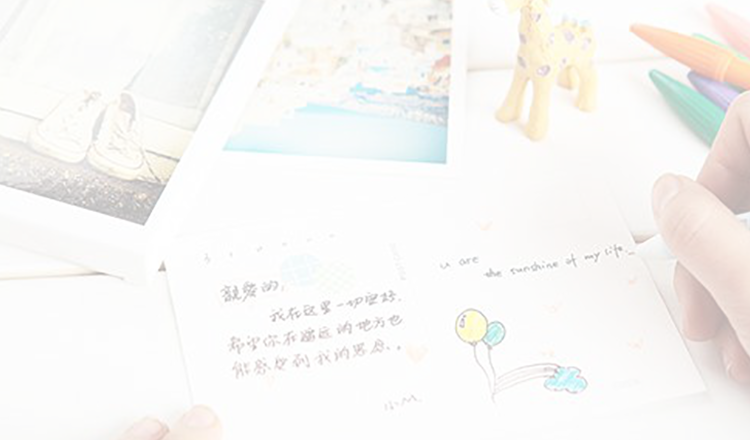 亲爱的,
我在这里一切安好.
希望你在遥远的地方也
能感受到我的思念.
u are
the sunshine of my life.